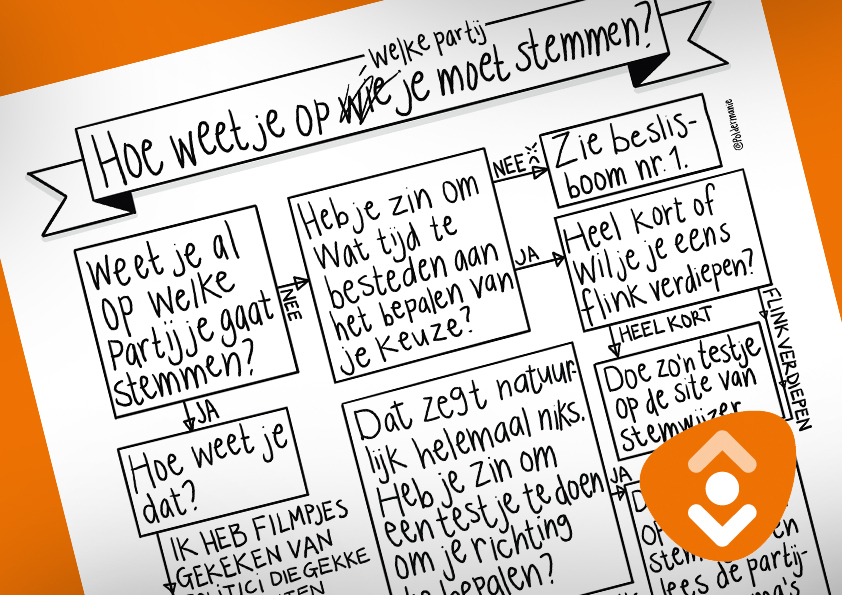 welke partij
Hoe weet je op wie je moet stemmen?
@Poldermanie
Weet je al
op welke
Partij je gaat
stemmen?
NEE
Heb je zin om
wat tijd te
besteden aan
het bepalen van
je keuze?
NEE
Zie beslis-
boom nr. 1.
JA
Heel kort of
wil je je eens
flink verdiepen?
HEEL KORT
FLINK VERDIEPEN
Doe zo'n testje
op de site van
stemwijzer
JA
Hoe weet je
dat?
IK HEB FILMPJES
GEKEKEN VAN
POLITICI DIE GEKKE
Dat zegt natuur-
lijk helemaal niks.
Heb je zin om
een testje te doen
om je richting
te bepalen?
JA
en
lees de partij-